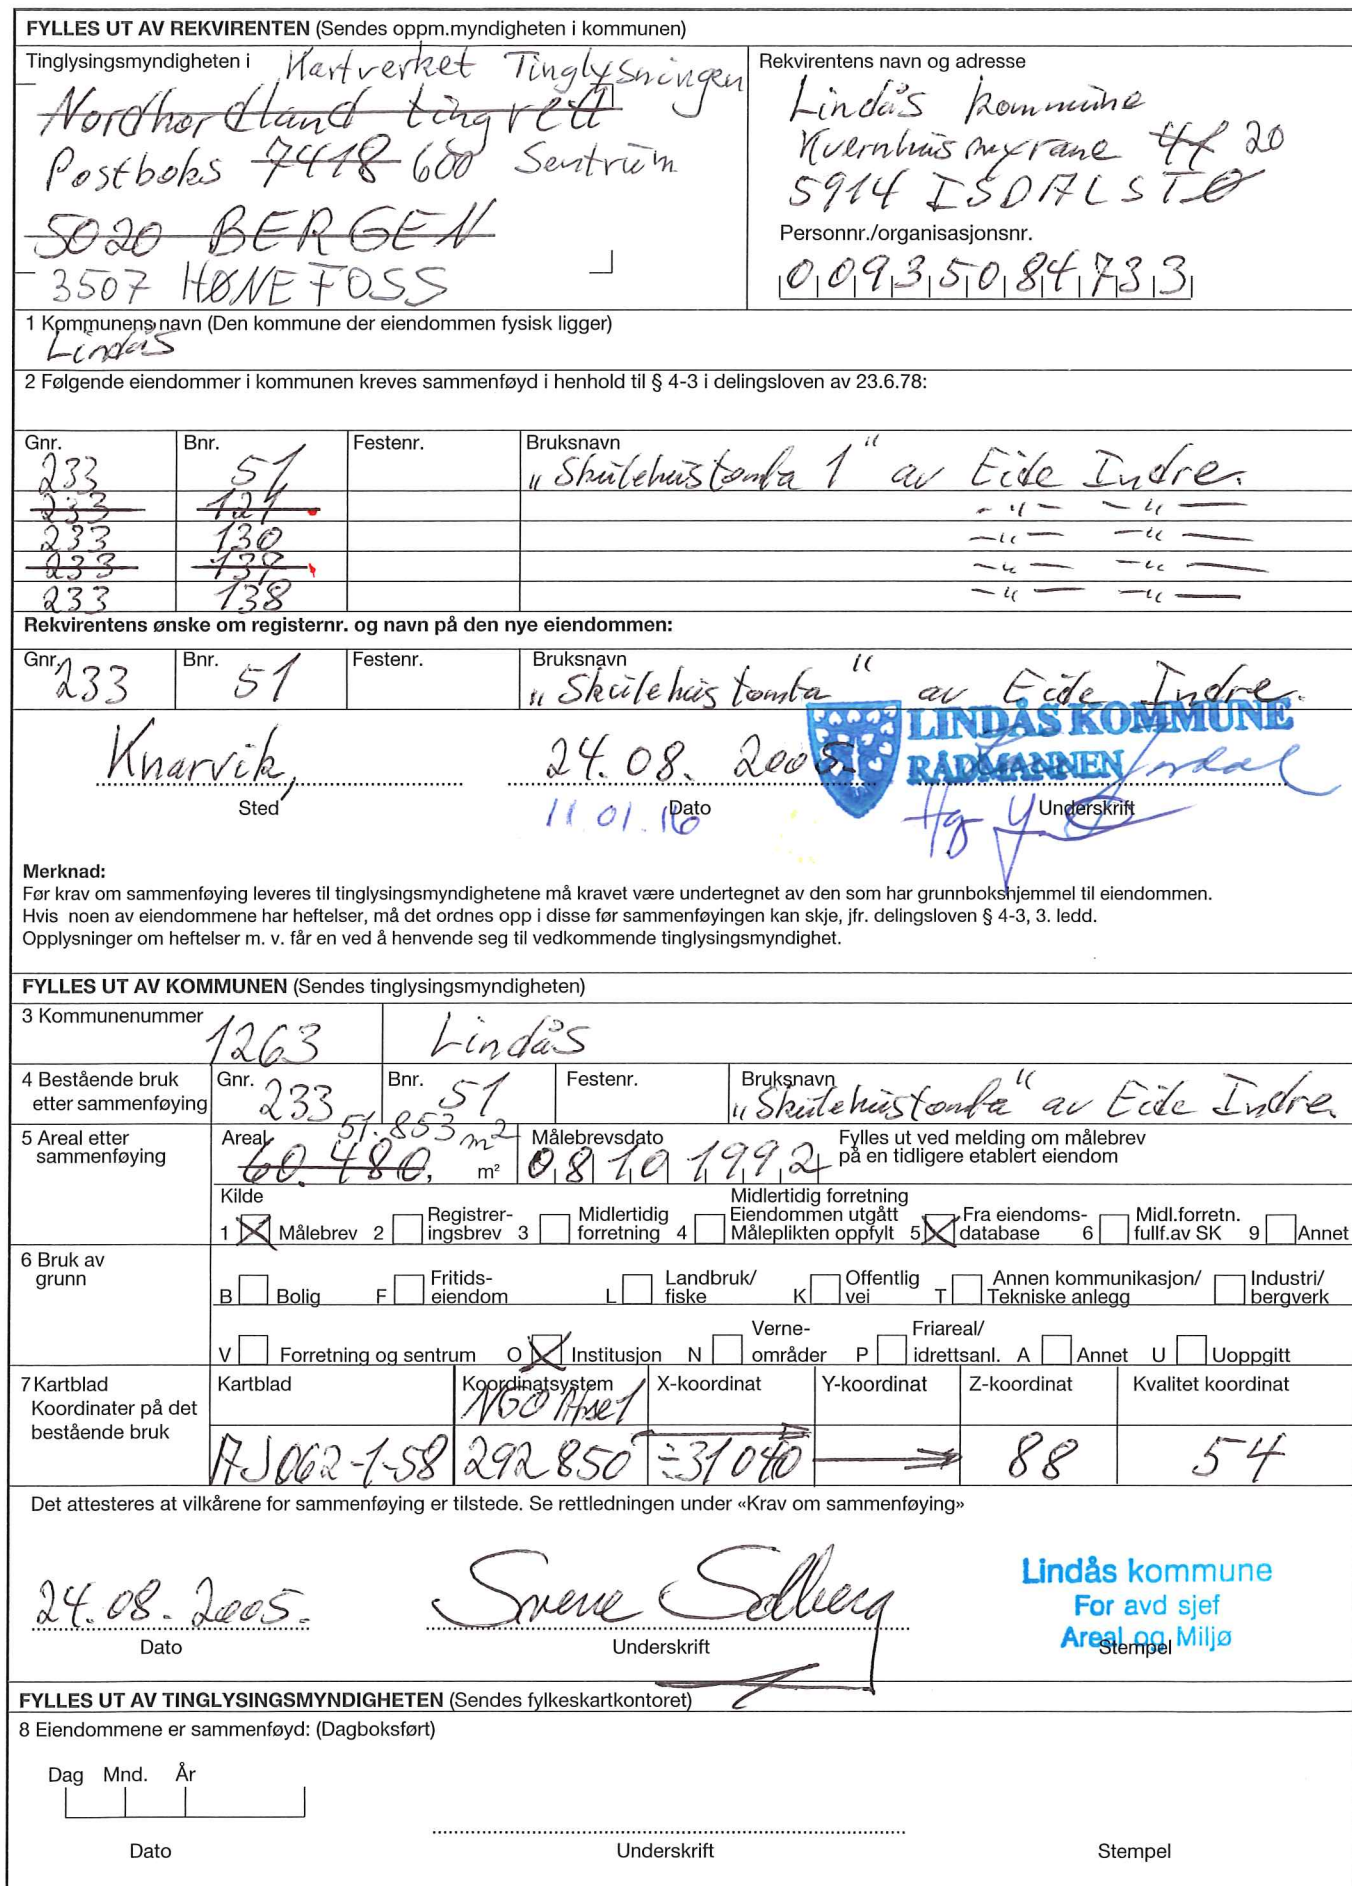 FYLLES UT AV REKVIRENTEN (Sendes oppm.myndigheten i kommunen)
Tinglysingsmyndigheten i Kartverket Tinglysningen
Nordhordland tingrett
Postboks 7418 600 Sentrum
5020 BERGEN
3507 HØNEFOSS
Rekvirentens navn og adresse
Lindås kommune
Kvernhusmyrane 41 20
5914 ISDALSTØ
Personnr./organisasjonsnr.
00935084733
1 Kommunens navn (Den kommune der eiendommen fysisk ligger)
Lindås
2 Følgende eiendommer i kommunen kreves sammenføyd i henhold til § 4-3 i delingsloven av 23.6.78:
Gnr. Bnr. Festenr. Bruksnavn
233 51 "Skulehustomta 1" av Eide Indre.
233 121 -"- -"-
233 130 -"- -"-
233 137 -"- -"-
233 138 -"- -"-
Rekvirentens ønske om registernr. og navn på den nye eiendommen:
Gnr. Bnr. Festenr. Bruksnavn
233 51 "Skulehustomta" av Eide Indre.
LINDÅS KOMMUNE
RÅDMANNEN
Knarvik, 24.08.2005.
Sted Dato Underskrift
11.01.16
Merknad:
Før krav om sammenføying leveres til tinglysingsmyndighetene må kravet være undertegnet av den som har grunnbokshjemmel til eiendommen.
Hvis noen av eiendommene har heftelser, må det ordnes opp i disse før sammenføyingen kan skje, jfr. delingsloven § 4-3, 3. ledd.
Opplysninger om heftelser m. v. får en ved å henvende seg til vedkommende tinglysingsmyndighet.
FYLLES UT AV KOMMUNEN (Sendes tinglysingsmyndigheten)
3 Kommunenummer 1263 Lindås
4 Bestående bruk etter sammenføying Gnr. 233 Bnr. 51 Festenr. Bruksnavn "Skulehustomta" av Eide Indre
5 Areal etter sammenføying Areal 51.853 m² 60.480. m² Målebrevsdato 08101992 Fylles ut ved melding om målebrev på en tidligere etablert eiendom
Kilde
1 Målebrev 2 Registreringsbrev 3 Midlertidig forretning 4 Midlertidig forretning Eiendommen utgått Måleplikten oppfylt 5 Fra eiendomsdatabase 6 Midl.forretn. fullf.av SK 9 Annet
6 Bruk av grunn
B Bolig F Fritidseiendom L Landbruk/fiske K Offentlig vei T Annen kommunikasjon/Tekniske anlegg Industri/bergverk
V Forretning og sentrum O Institusjon N Verneområder P Friareal/idrettsanl. A Annet U Uoppgitt
7 Kartblad Koordinater på det bestående bruk
Kartblad Koordinatsystem X-koordinat Y-koordinat Z-koordinat Kvalitet koordinat
NGO Akse 1
AJ062-1-58 292850 ÷31040 88 54
Det attesteres at vilkårene for sammenføying er tilstede. Se rettledningen under «Krav om sammenføying»
24.08.2005. Sverre Solberg
Lindås kommune
For avd sjef
Areal og Miljø
Dato Underskrift Stempel
FYLLES UT AV TINGLYSINGSMYNDIGHETEN (Sendes fylkeskartkontoret)
8 Eiendommene er sammenføyd: (Dagboksført)
Dag Mnd. År
Dato Underskrift Stempel